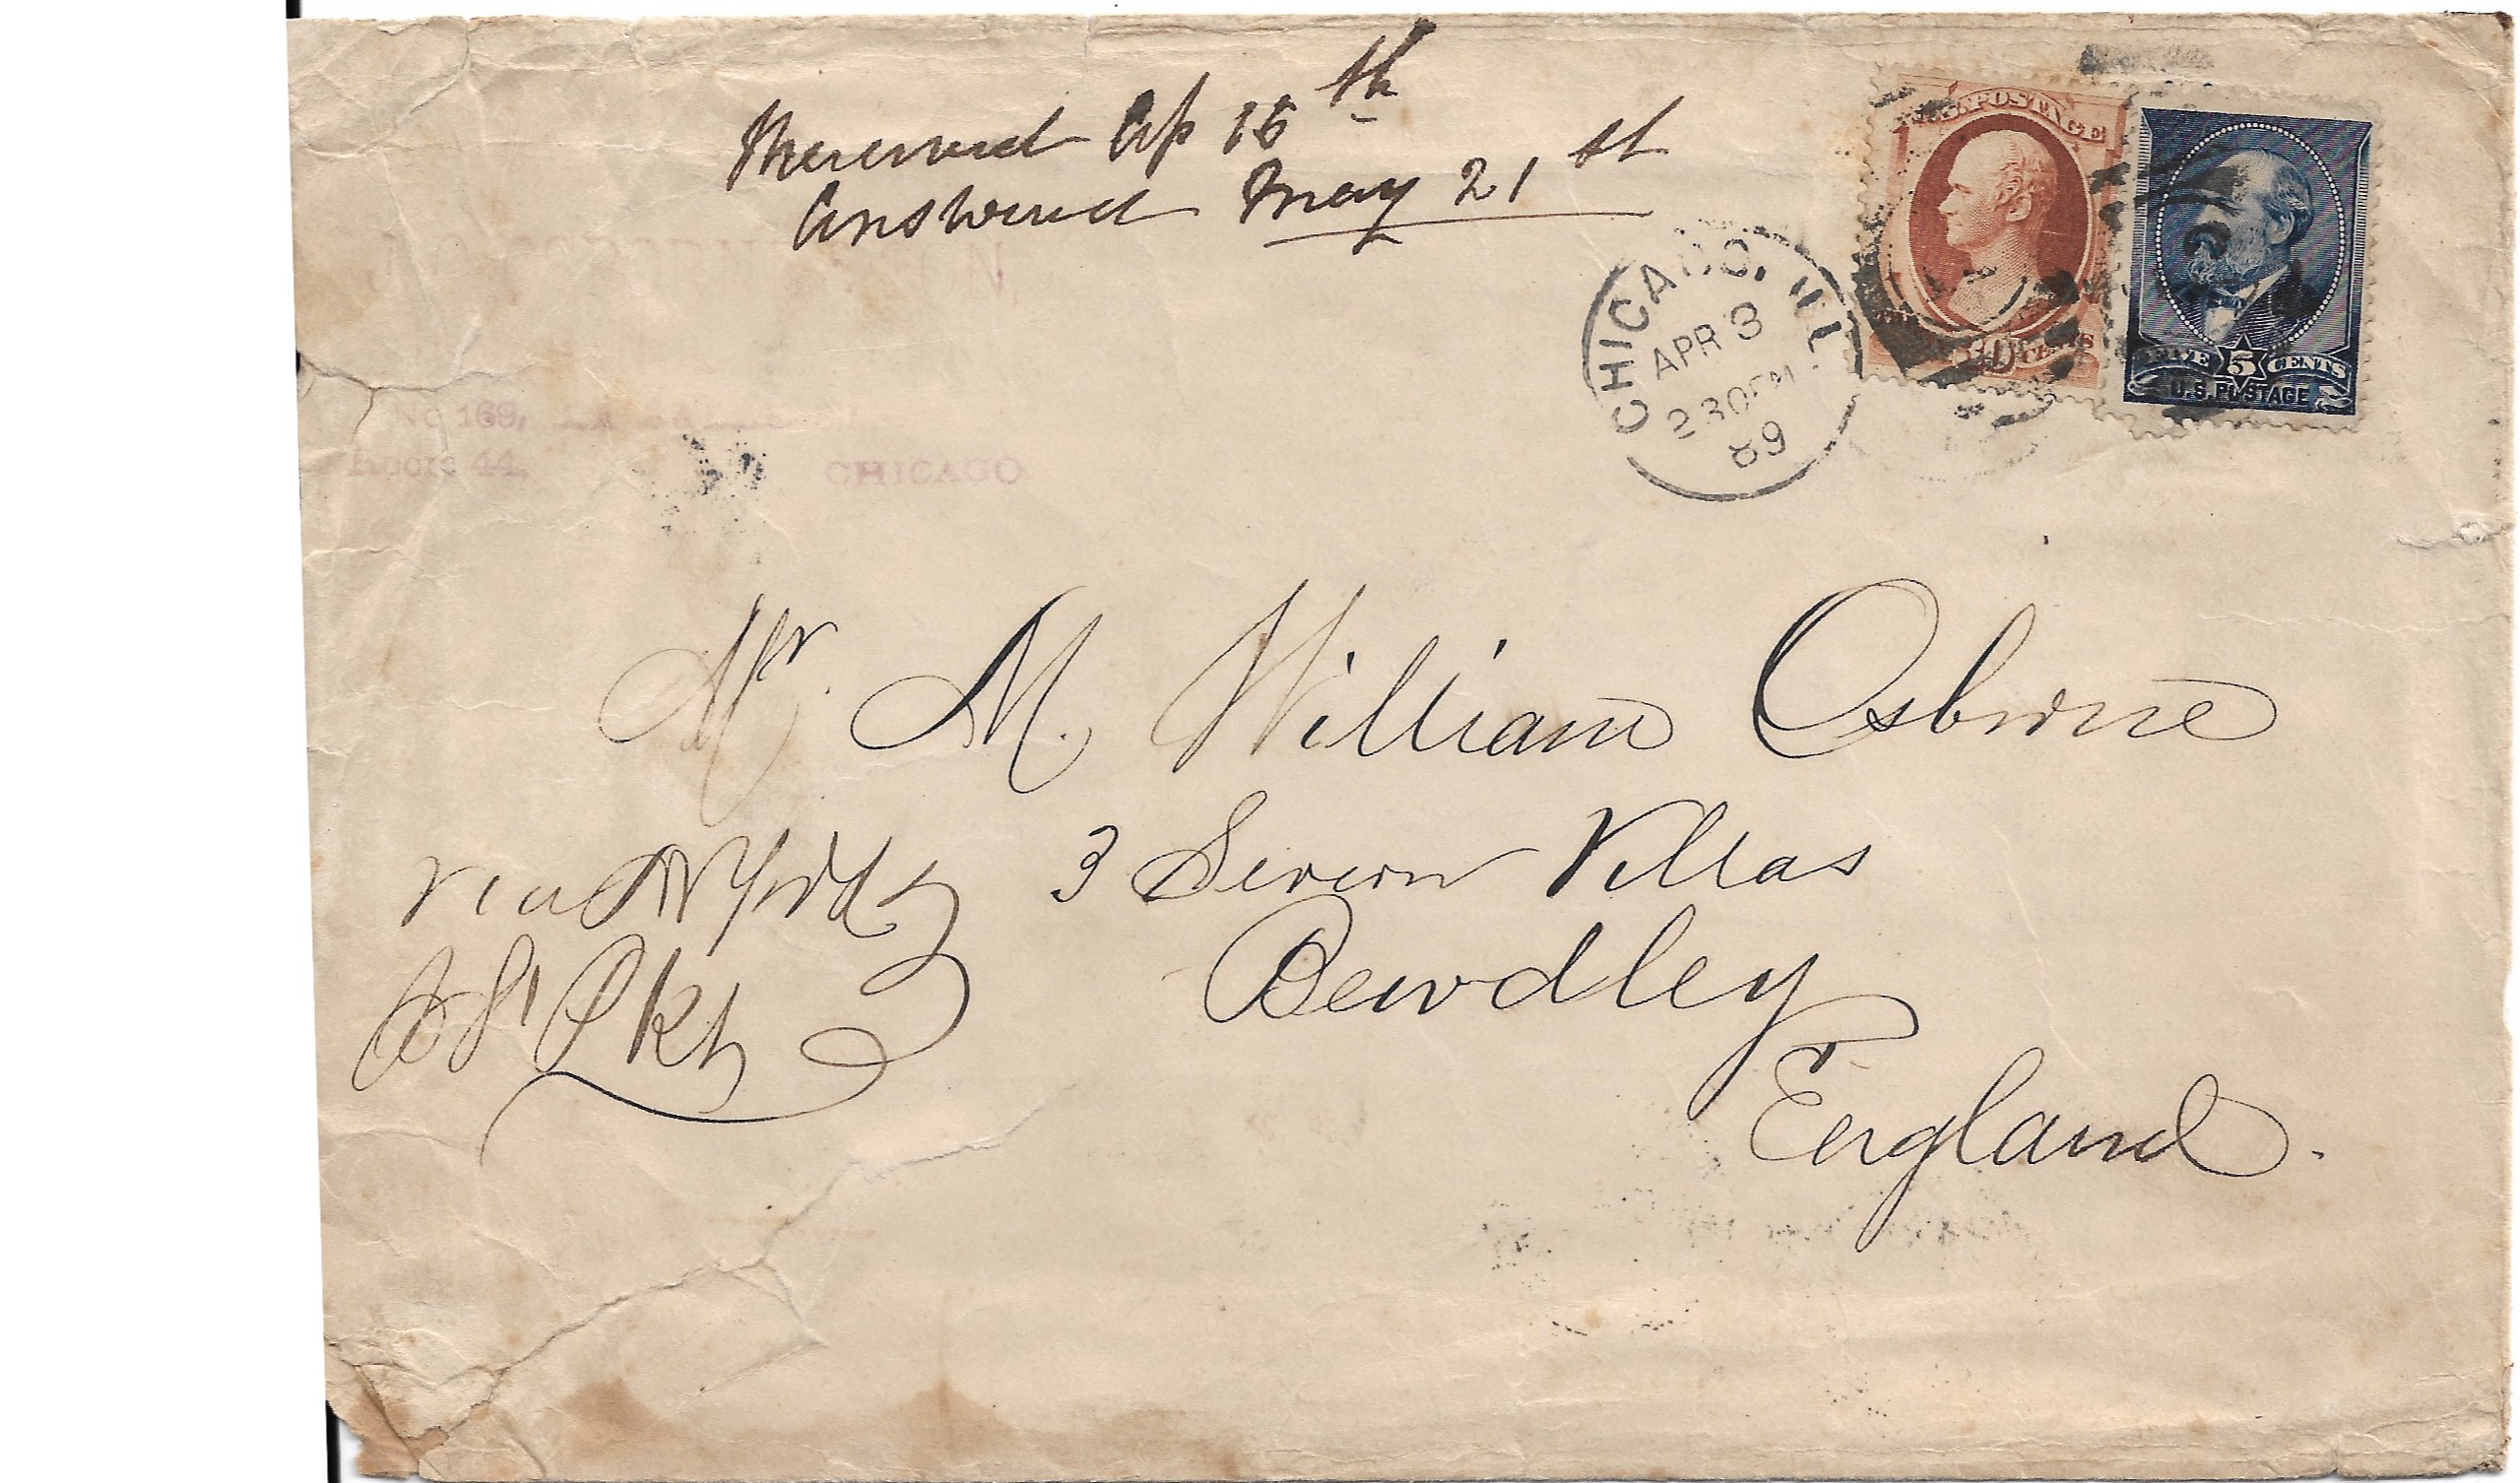 Received Ap 15th
Answered May 21st
U.S. POSTAGE
CENTS
5
FIVE CENTS
U.S. POSTAGE
CHICAGO, ILL.
APR 3
230PM
89
No 169,
Room 44, CHICAGO
Mr. M. William Osborne
3 Severn Villas
Bewdley
England.
via N York
Pkt